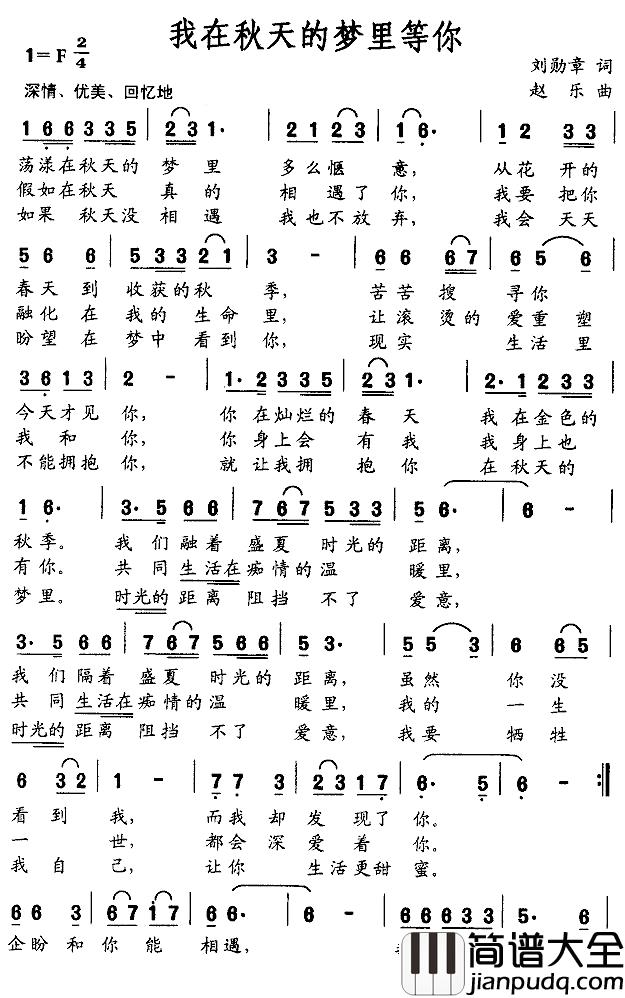 我在秋天的梦里等你
1=F 2/4
刘勋章 词
深情、优美、回忆地
赵乐 曲
1 6 6 3 3 5 | 2 3 1· | 2 1 2 3 | 1 6· | 1 2 3 3 |
荡漾在秋天的 梦里 多么惬 意， 从花 开的
假如在秋天 真的 相遇了你， 我要 把你
如果 秋天没 相遇 我也不放弃， 我会 天天
5 6 6 | 5 3 3 2 1 | 3 - | 6 6 6 7 | 6 5 6 |
春天到 收获的秋 季， 苦苦搜 寻你
融化在 我的生命 里， 让滚烫的 爱重塑
盼望在 梦中看到 你， 现实 生活里
3 6 1 3 | 2 - | 1· 2 3 3 5 | 2 3 1· | 2· 1 2 3 3 |
今天才见 你， 你在灿烂的 春天 我在金色的
我和 你， 你身上会 有我 我身上也
不能拥抱 你， 就让我拥 抱你 在秋天的
1 6· | 3· 5 6 6 | 7 6 7 5 3 3 | 5 6· | 6 - |
秋季。 我们融着 盛夏 时光的 距离，
有你。 共同生活在 痴情的温 暖里，
梦里。 时光的距离 阻挡 不了 爱意，
3· 5 6 6 | 7 6 7 5 6 6 | 5 3· | 5 5 3 | 6 6 5 |
我们隔着 盛夏 时光的 距离， 虽然 你没
共同生活在 痴情的温 暖里， 我的 一生
时光的距离 阻挡 不了 爱意， 我要 牺牲
6 3 2 | 1 - | 7 7 3 | 2 3 1 7 | 6· 5 | 6 - :‖
看到 我， 而我却 发现了 你。
一 世， 都会深 爱着 你。
我自 己， 让你 生活更甜 蜜。
6 6 3 | 6 7 1 7 | 6 6· | 6 - | 6 6 6 3 3 | 5· 6
企盼和 你能 相遇，
简谱大全
jianpudq.com